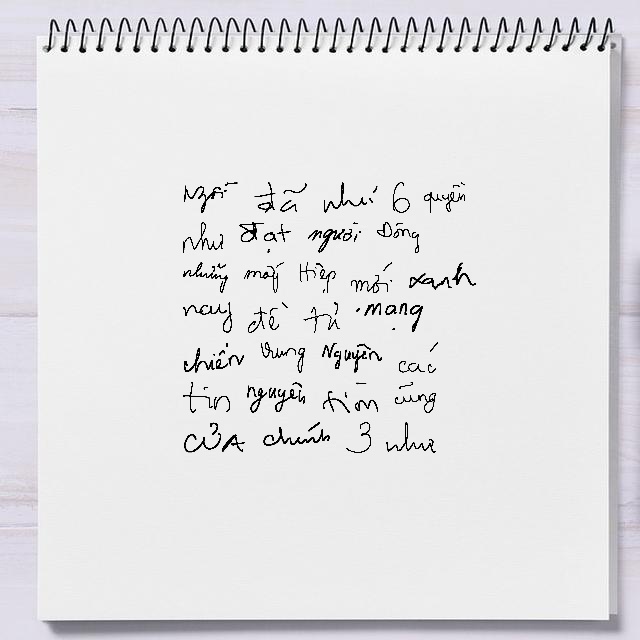 đã như 6 quyền
như đạt người Đông
những mấy Hiệp mới xanh
nay đề từ mạng
chiến trung Nguyễn các
tin nguyên tiền cũng
CỦA chính 3 như